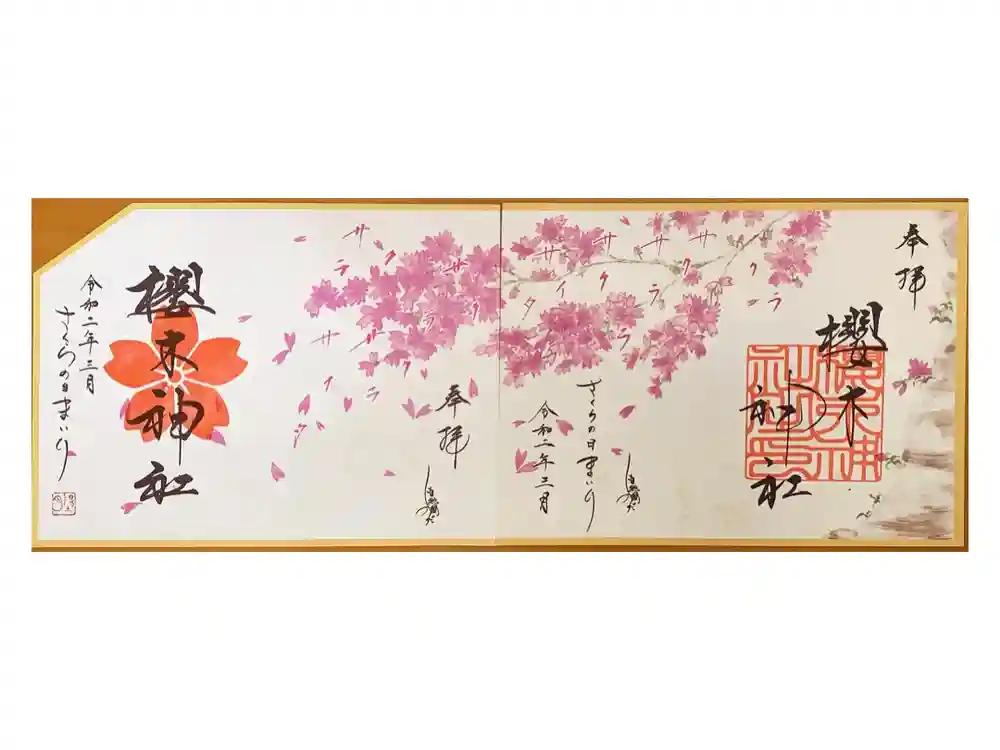 奉拝
櫻木神社
櫻木神社印
さくらの日まいり
令和二年三月
サクラ
サクラ
サクラ
サイタ
サイタ
サクラ
奉拝
櫻木神社
令和二年三月
さくらの日まいり